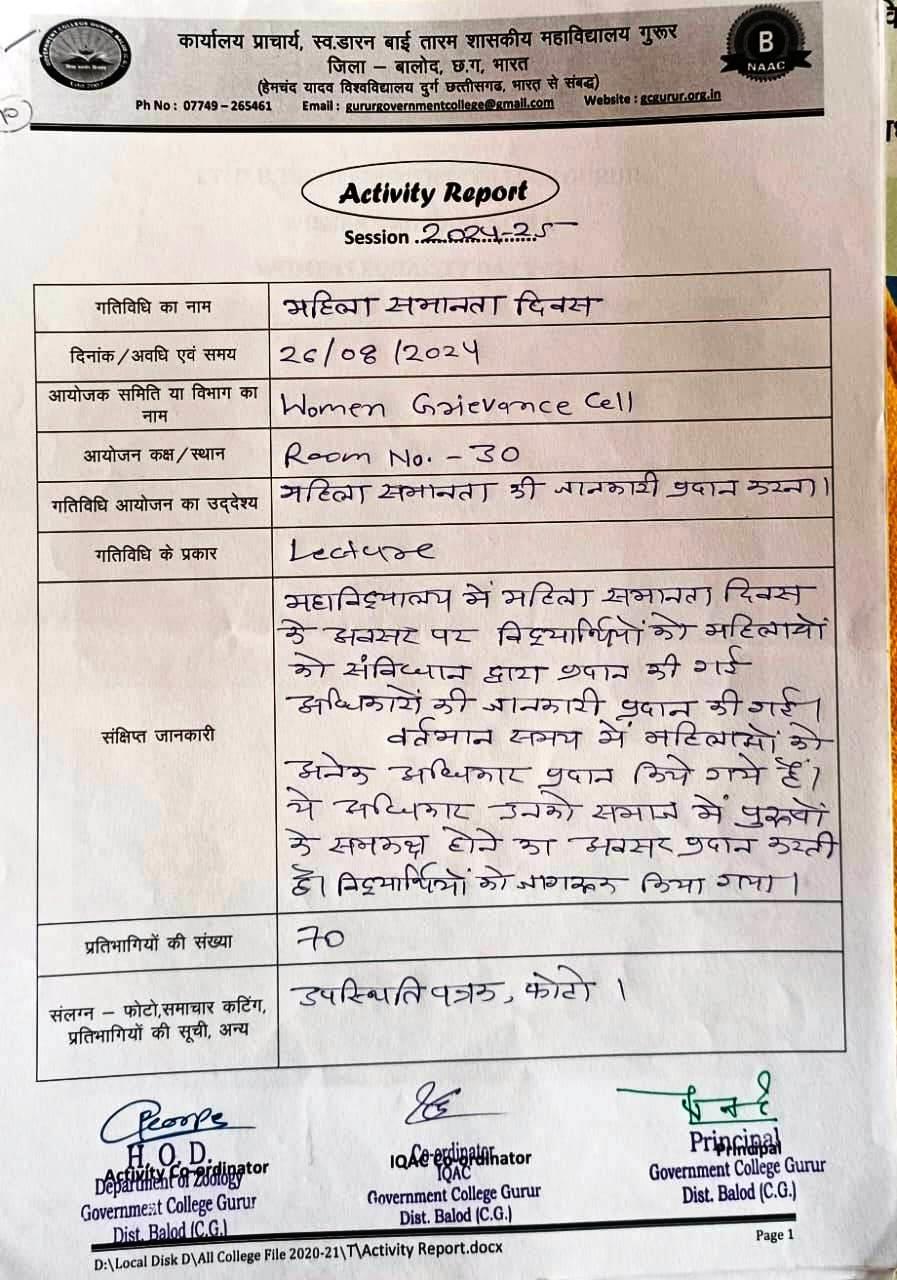 कार्यालय प्राचार्य, स्व.डारन बाई तारम शासकीय महाविद्यालय गुरूर
जिला – बालोद, छ.ग, भारत
(हेमचंद यादव विश्वविद्यालय दुर्ग छत्तीसगढ, भारत से संबद्ध)
Ph No : 07749 – 265461 Email : gururgovernmentcollege@gmail.com Website : gcgurur.org.in
B
NAAC
Activity Report
Session 2024-25
गतिविधि का नाम महिला समानता दिवस
दिनांक/अवधि एवं समय 26/08/2024
आयोजक समिति या विभाग का
नाम
Women Grievance Cell
आयोजन कक्ष/स्थान Room No. - 30
गतिविधि आयोजन का उद्देश्य महिला समानता की जानकारी प्रदान करना।
गतिविधि के प्रकार Lecture
संक्षिप्त जानकारी
महाविद्यालय में महिला समानता दिवस
के अवसर पर विद्यार्थियों को महिलायों
को संविधान द्वारा प्रदान की गई
अधिकारों की जानकारी प्रदान की गई।
वर्तमान समय में महिलाओं को
अनेक अधिकार प्रदान किये गये हैं।
ये अधिकार उनको समाज में पुरुषों
के समकक्ष होने का अवसर प्रदान करती
है। विद्यार्थियों को जागरूक किया गया।
प्रतिभागियों की संख्या 70
संलग्न – फोटो,समाचार कटिंग,
प्रतिभागियों की सूची, अन्य
उपस्थिति पत्रक, फोटो।
H. O. D.
Activity Co-ordinator
Department of Zoology
Government College Gurur
Dist. Balod (C.G.)
Co-ordinator
IQAC Co-ordinator
IQAC
Government College Gurur
Dist. Balod (C.G.)
Principal
Principal
Government College Gurur
Dist. Balod (C.G.)
D:\Local Disk D\All College File 2020-21\T\Activity Report.docx
Page 1